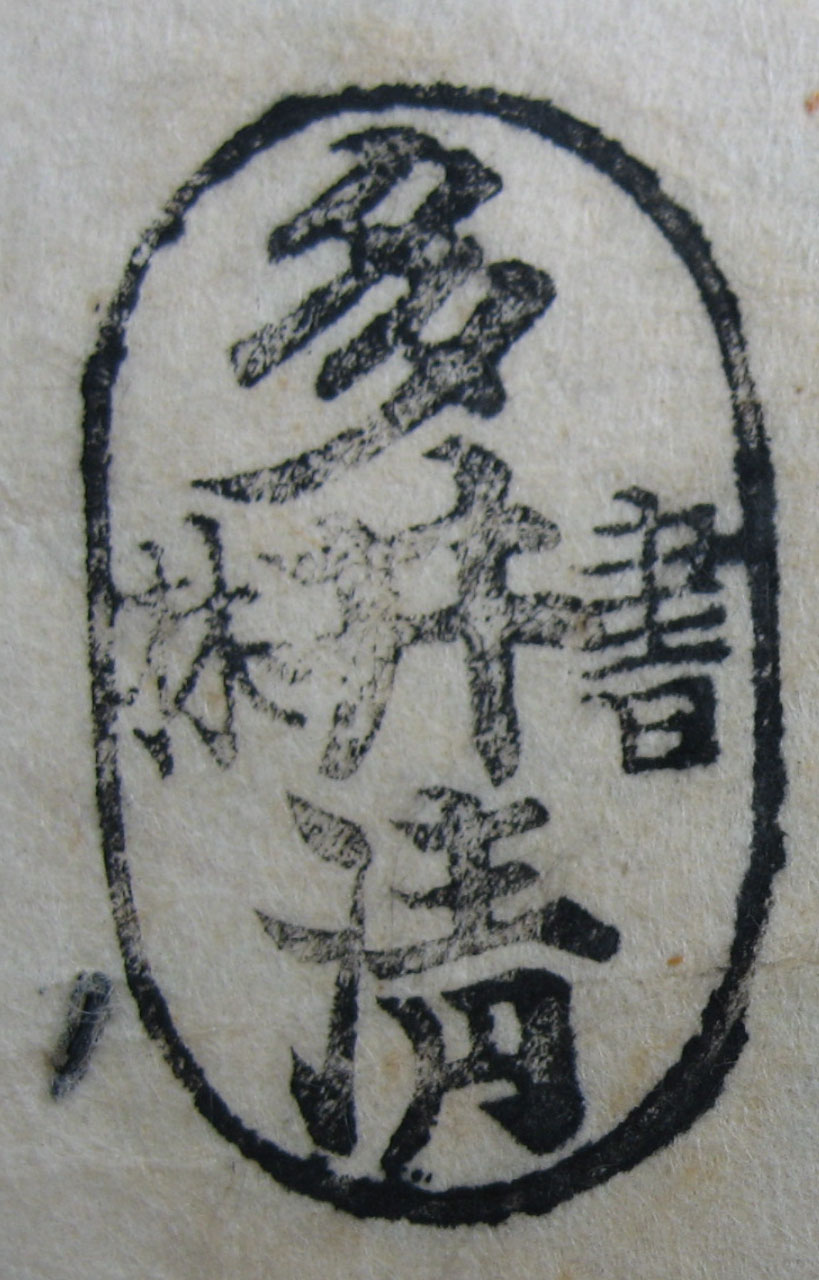 書林
多井清